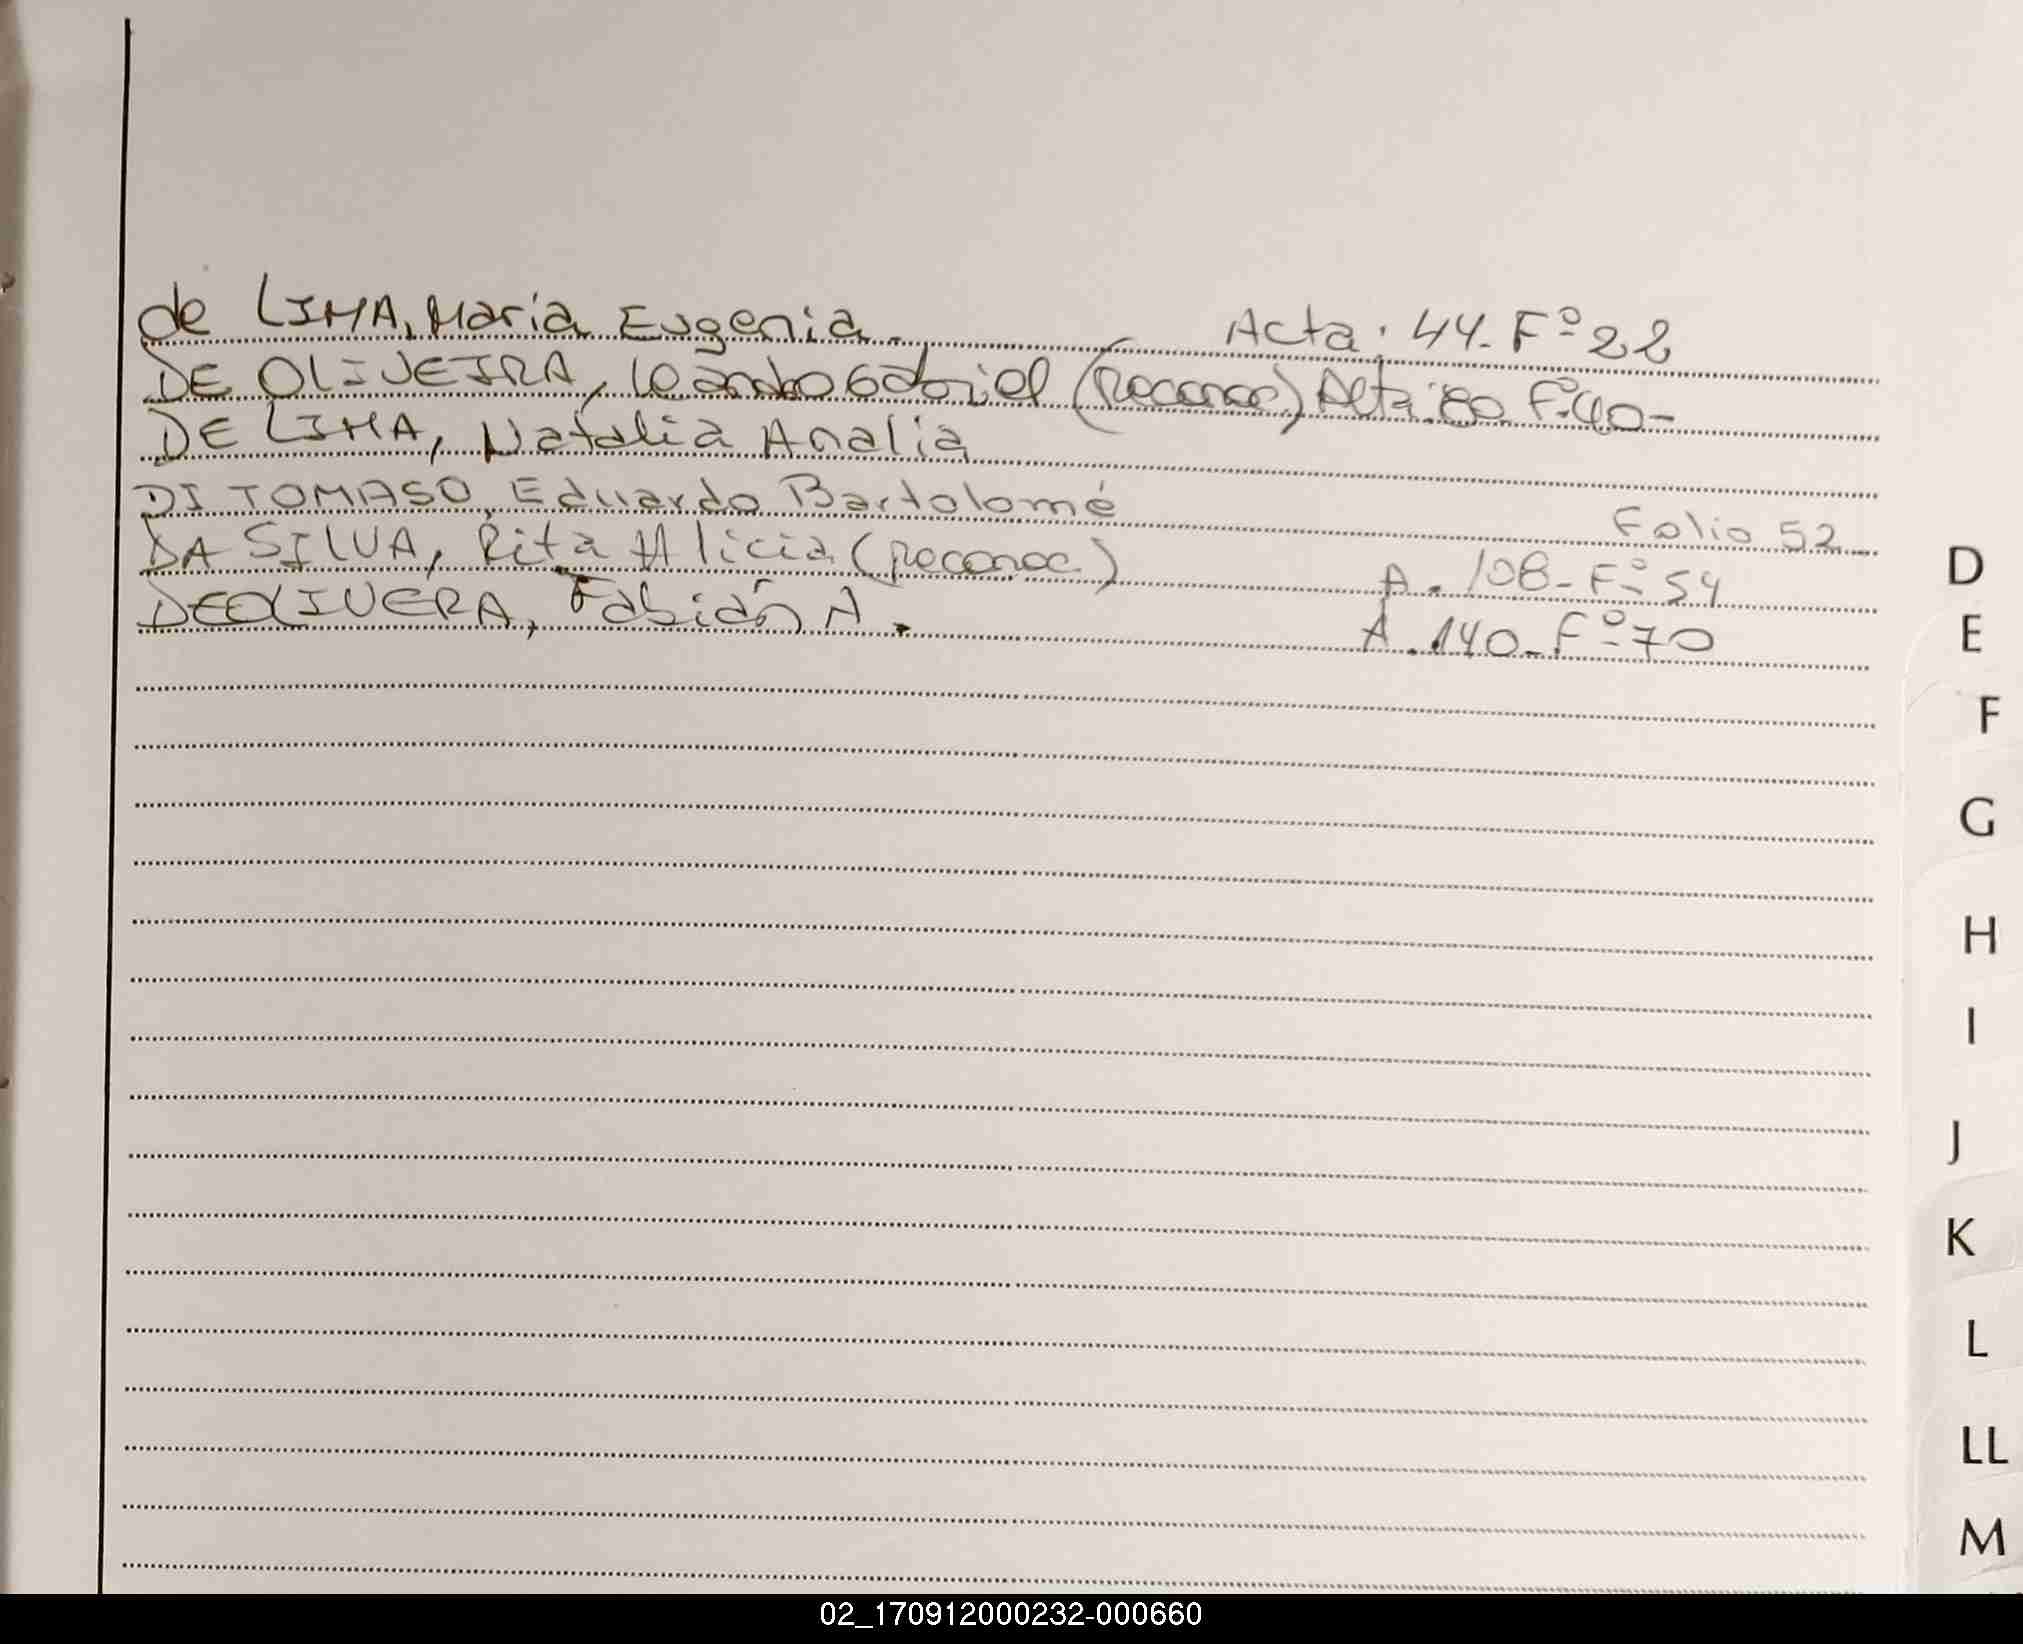 de LIMA, María Eugenia. Acta. 44. Fº 22
DE OLIVEIRA, Leandro Gabriel (Reconoc) Acta. 80. Fº 40-
DE LIMA, Natalia Analia
DI TOMASO, Eduardo Bartolomé Folio 52
DA SILVA, Rita Alicia (Reconoc.) A. 108- Fº 54
DEOLIVERA, Fabián A. A. 140- Fº 70
D
E
F
G
H
I
J
K
L
LL
M
02_170912000232-000660